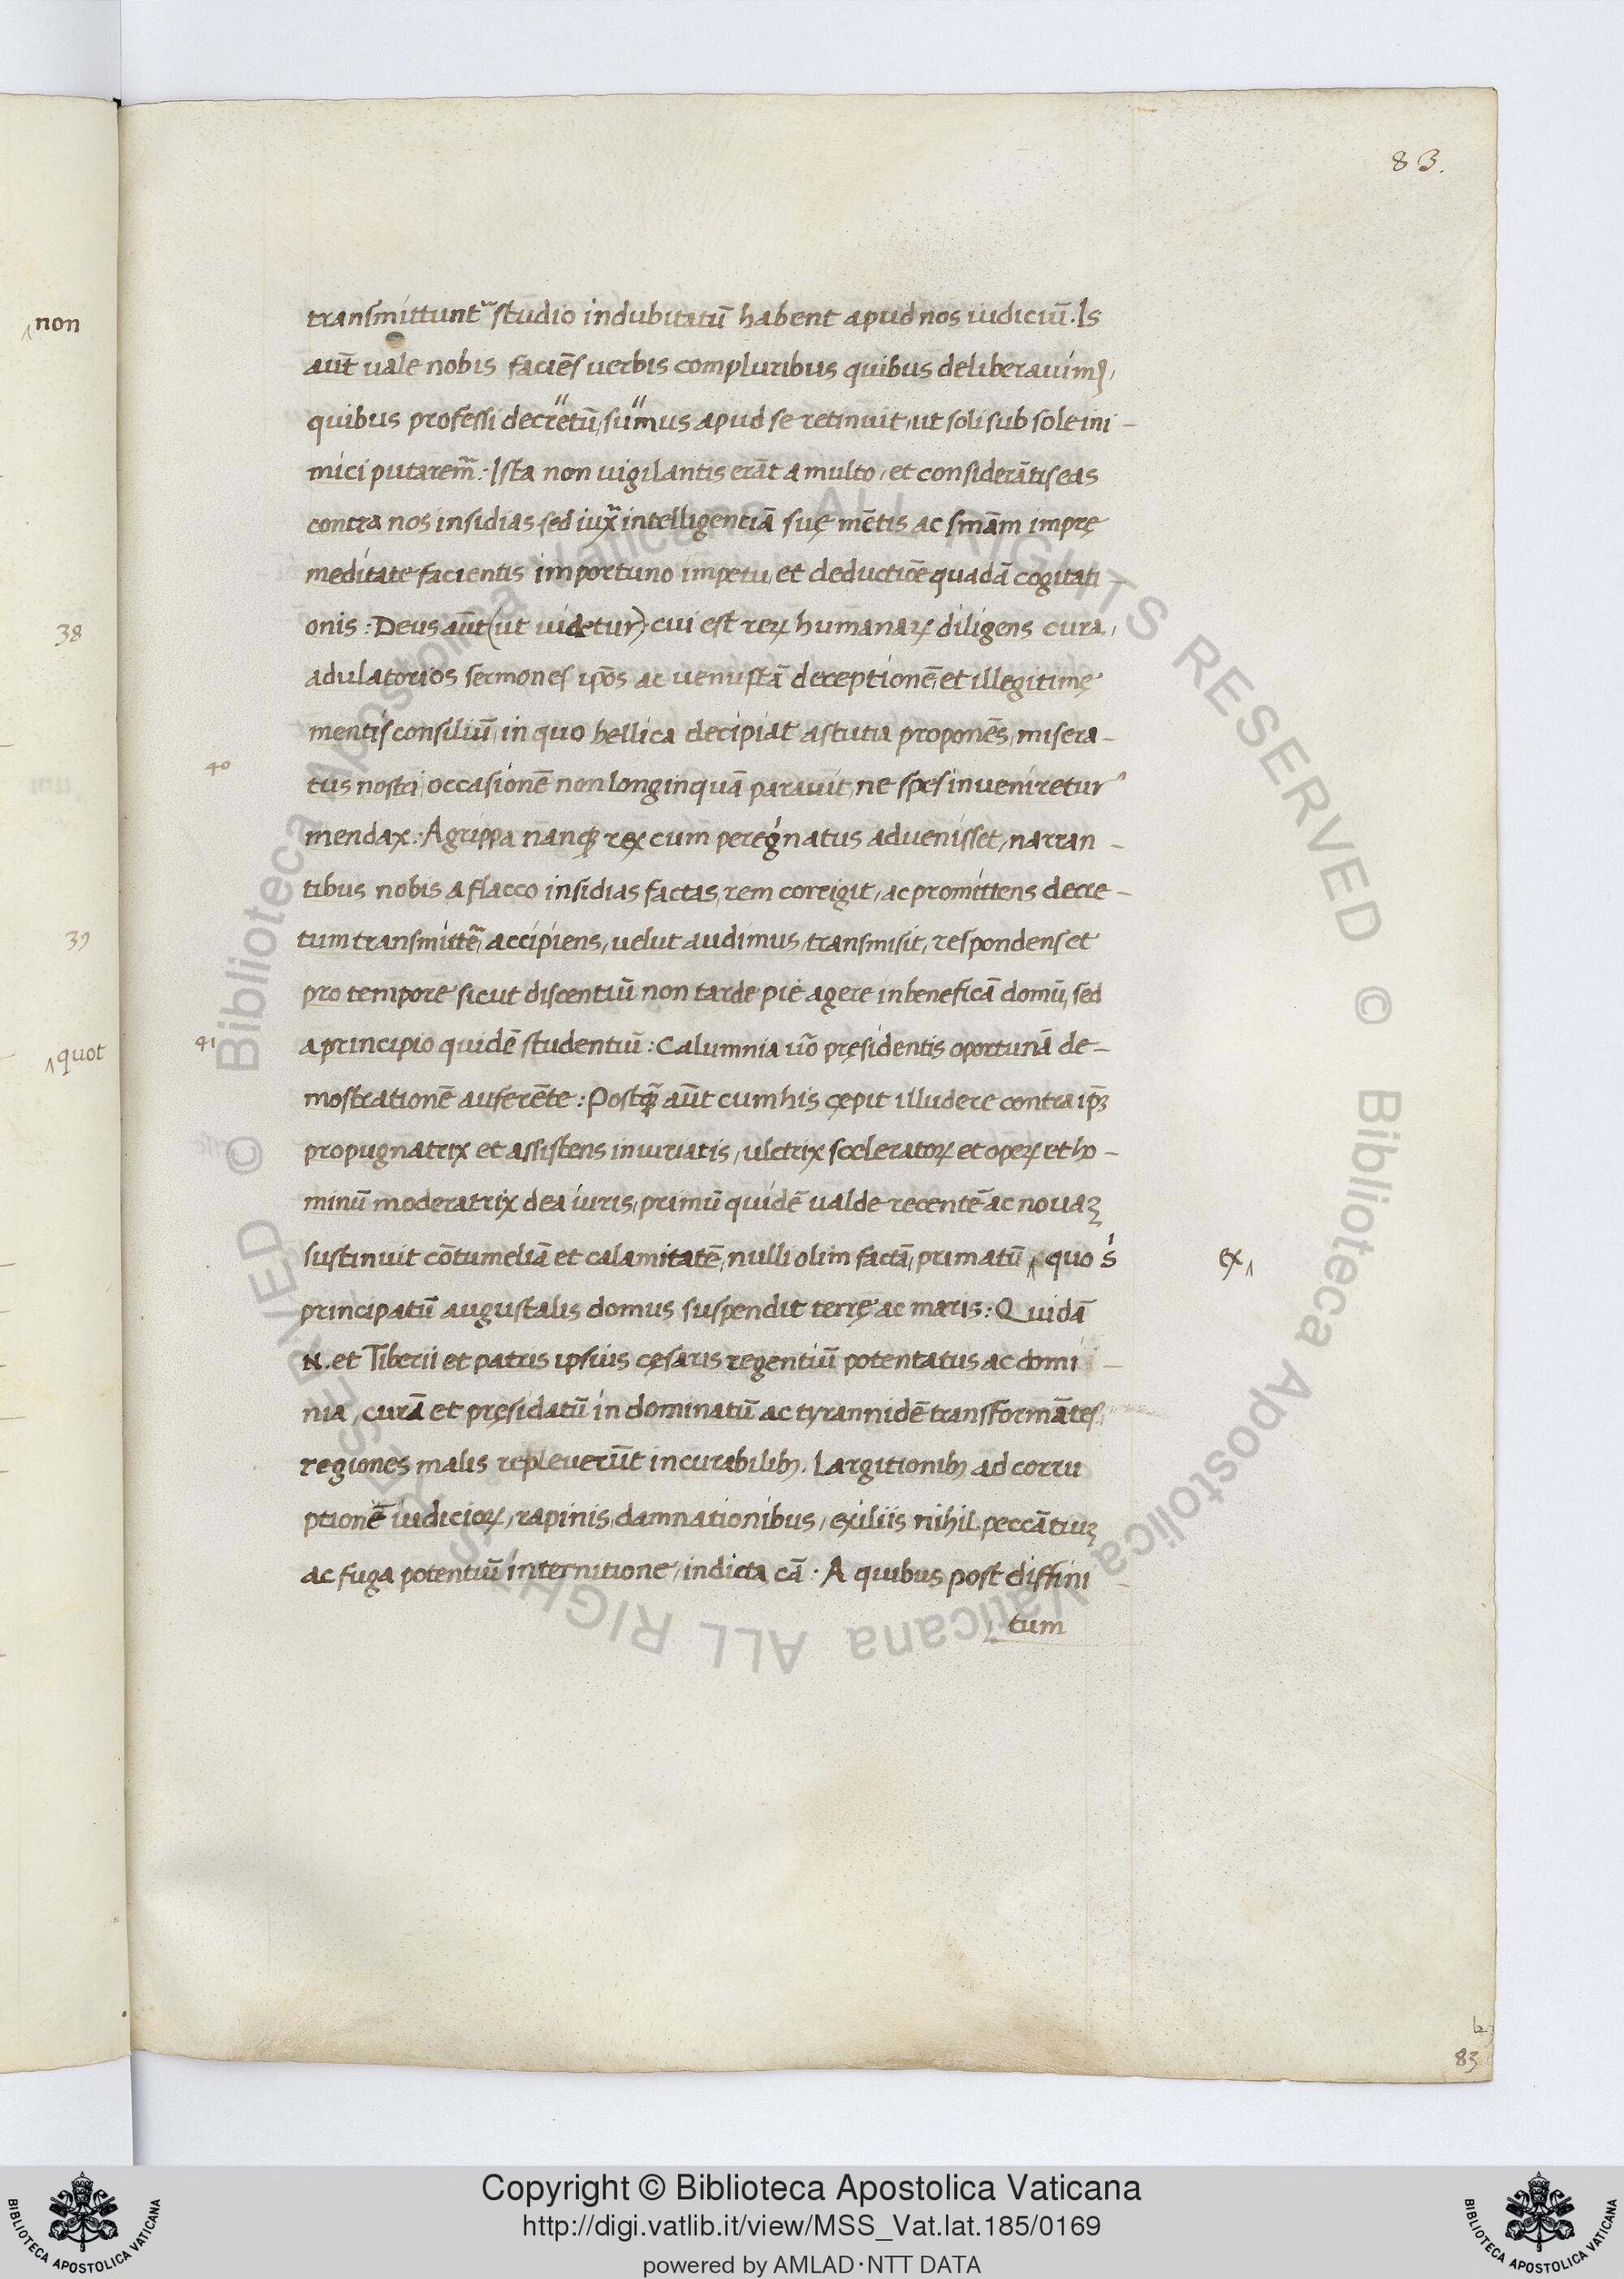 83.
non
transmittunt᷑ studio indubitatū habent apud nos iudiciū. Is
aut̄ uale nobis faciēs uerbis compluribus quibus deliberauimꝰ,
quibus professi decretū, sumus apud se retinuit, ut soli sub sole ini-
mici putarem᷑: Ista non uigilantis erāt a multo, et considerātis eas
contra nos insidias, sed iux᷑ intelligentiā suę mētis ac sn̄iam impre
meditate facientis importuno impetu et deductiōe quadā cogitati-
38
onis: Deus aut̄ (ut uidetur) cui est reꝝ humanaꝝ diligens cura,
adulatorios sermones ip̄os ac uenustā deceptionē, et illegitimę
mentis consiliū, in quo bellica decipiat astutia proponēs, misera-
40
tus nostri, occasionē non longinquā parauit, ne spes inueniretur
mendax: Agrippa nanq; rex cum peregnatus aduenisset, narran-
tibus nobis a flacco insidias factas, rem corrigit, ac promittens decre-
39
tum transmittē, accipiens, uelut audimus, transmisit, respondens et
pro tempore sicut discentiū non tarde pie agere in beneficā domū, sed
41
quot
a principio quidē studentiū: Calumnia ūo pręsidentis oportunā de-
mostrationē auferēte: Postq̄ aut̄ cum his cępit illudere contra ip̄ꝫ
propugnatrix et assistens iniuriatis, ultrix sceleratoꝝ et opeꝝ et ho-
minū moderatrix dea iuris, primū quidē ualde recentē ac nouaꝫ
sustinuit cōtumeliā et calamitatē, nulli olim factā, primatū ‸ quo s
ex‸
principatū augustalis domus suspendit terrę ac maris: Quidā
N. et Tiberii et patris ipsius cęsaris regentiū potentatus ac domi-
nia, curā et pręsidatū in dominatū ac tyrannidē transformātes,
regiones malis repleuerūt incurabilibꝰ. Largitionibꝰ ad corru
ptionē iudicioꝝ, rapinis, damnationibus, exiliis nihil peccātiuꝫ
ac fuga potentiū internitione, indicta cā. A quibus post diffini-
tum
83
Copyright © Biblioteca Apostolica Vaticana
http://digi.vatlib.it/view/MSS_Vat.lat.185/0169
powered by AMLAD·NTT DATA
BIBLIOTECA APOSTOLICA VATICANA
BIBLIOTECA APOSTOLICA VATICANA
© Biblioteca Apostolica Vaticana ALL RIGHTS RESERVED © Biblioteca Apostolica Vaticana ALL RIGHTS RESERVED